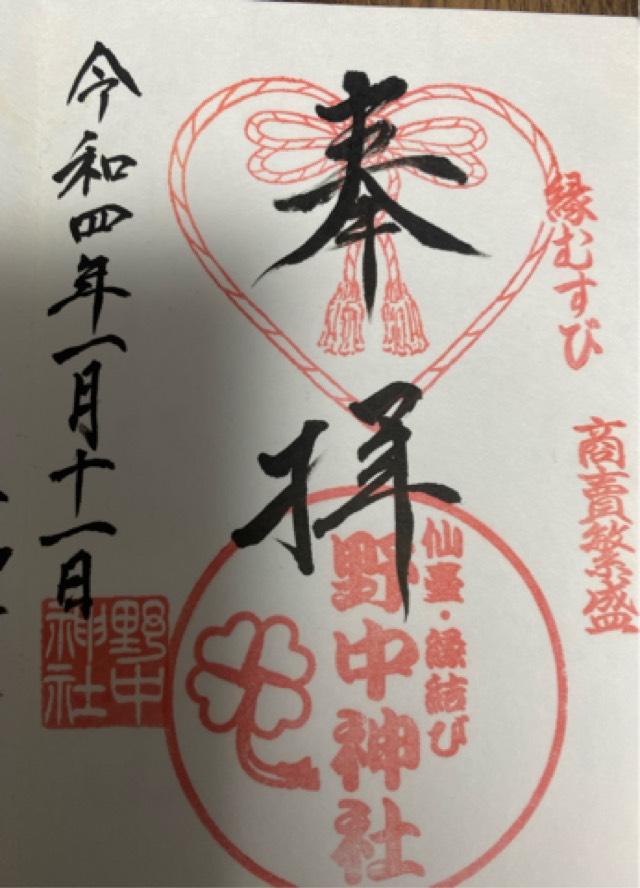 縁むすび
商賣繁盛
奉拝
仙臺・縁結び
野中神社
令和四年一月十一日
野中
神社